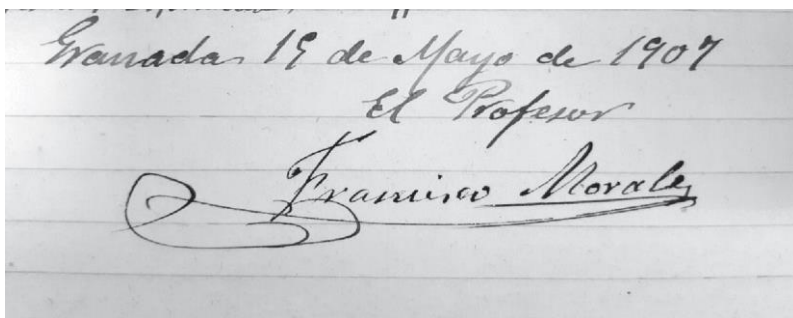 Granada 19 de Mayo de 1907
El Profesor
Francisco Morales